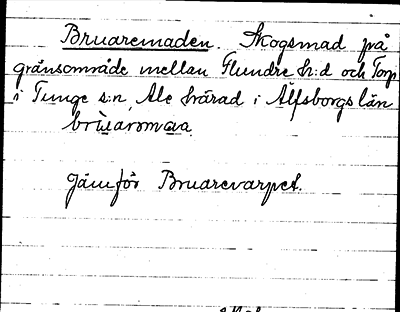 Bruaremaden. Skogsmad på
gränsområde mellan Flundre h:d och Torp
i Tunge s:n, Ale härad i Älfsborgs län
brùaromava.
Jämför Bruarevarpet.